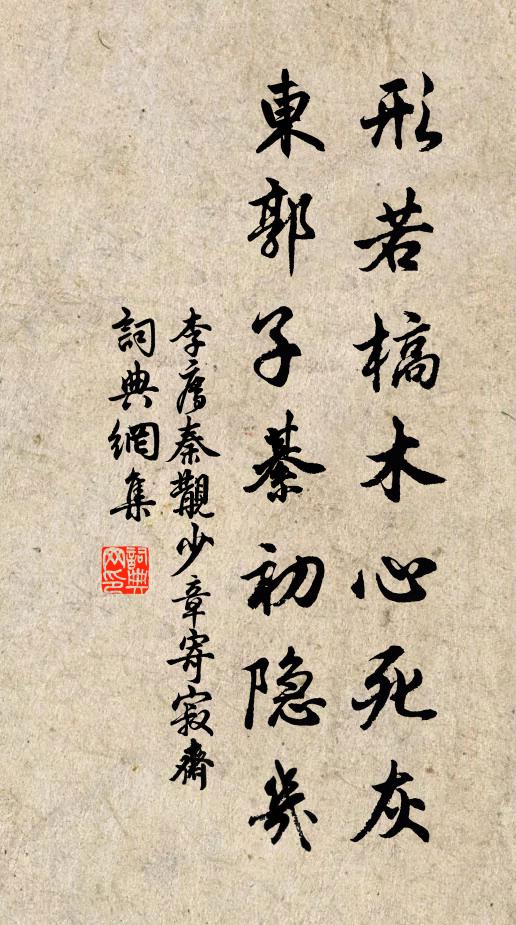 形若槁木心死灰
東郭子綦初隐几
李廌秦觀少章寄寂齋
詞典網集
詞典網印